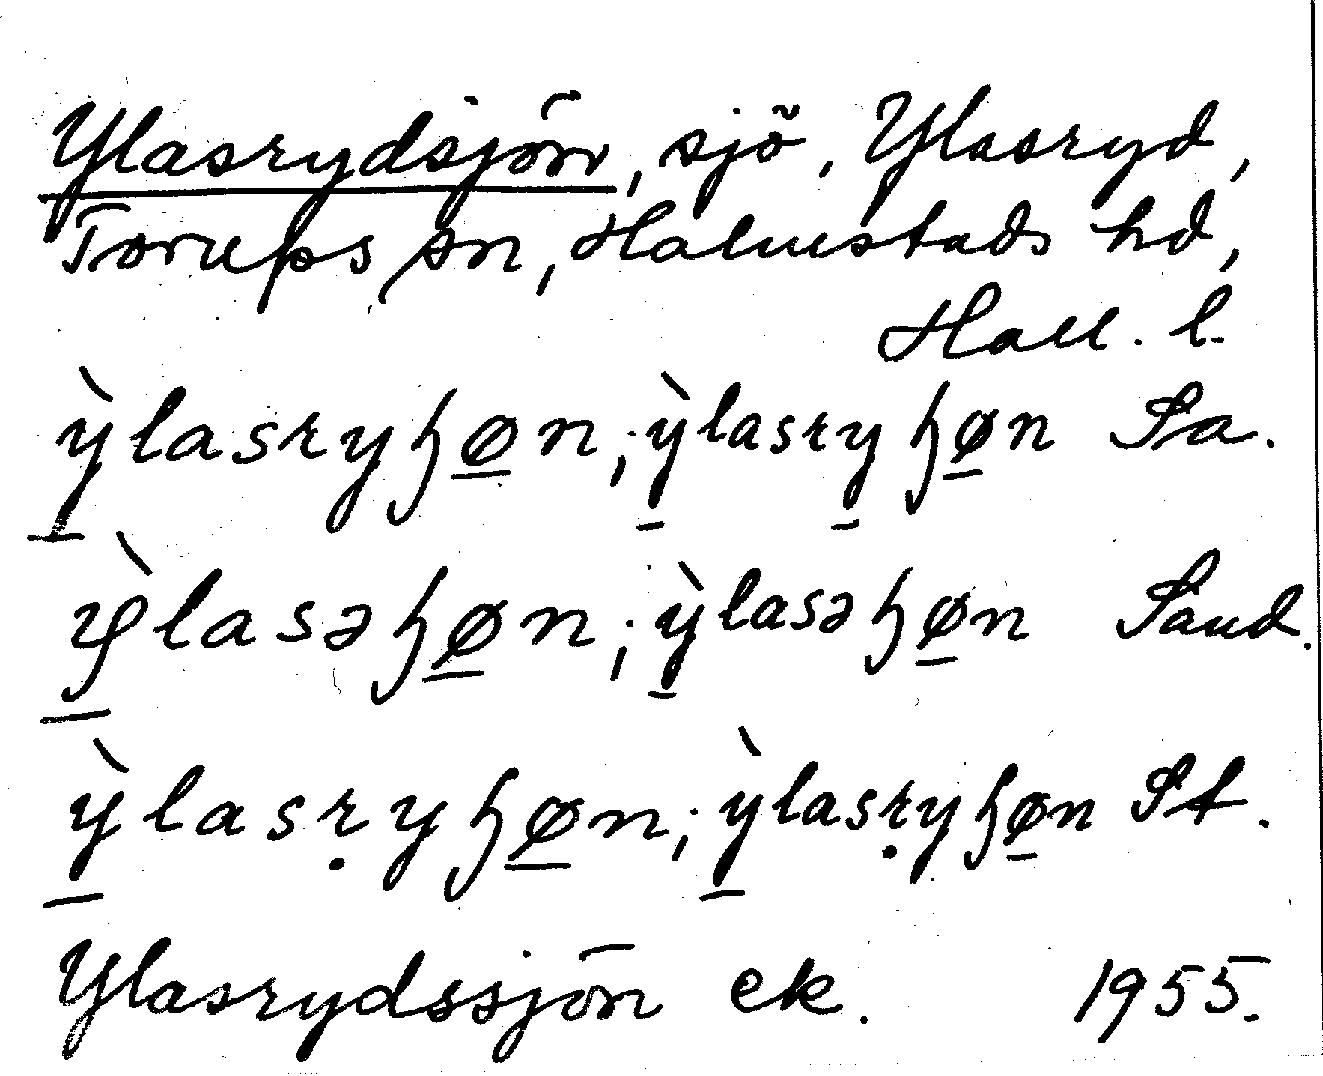 Ylasrydsjön, sjö, Ylasryd,
Torups sn, Halmstads hd,
Hall. l.
ỳ̠lasryɧø̠n; ỳ̠lasry̠ɧø̠n Sa.
ỳ̠lasəɧø̠n; ỳ̠lasəɧø̠n Sand.
ỳ̠lasṛyɧø̠n; ỳ̠lasṛyɧø̠n St.
Ylasrydssjön ek. 1955.